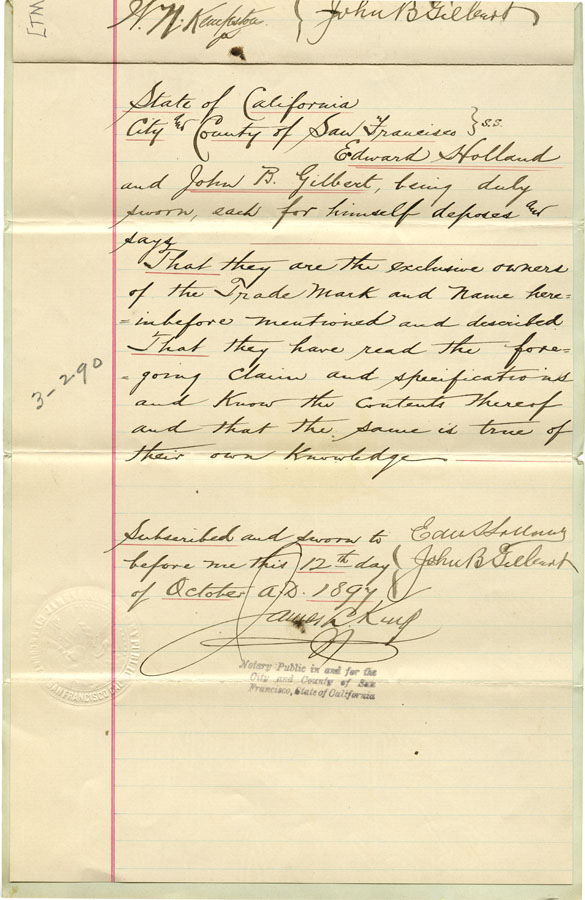 [TM
W. N. Kempston. { John B Gilbert
State of California
City and County of San Francisco } S.S.
Edward Holland
and John B. Gilbert, being duly
sworn, each for himself deposes and
says
That they are the exclusive owners
of the Trade Mark and Name here=
=inbefore mentioned and described
That they have read the fore=
=going Claim and specifications
and Know the Contents thereof
and that the same is true of
their own Knowledge
3-290
Subscribed and sworn to Edw Holland
before me this 12th day { John B Gilbert
of October A.D. 1897
James L King
Notary Public in and for the
City and County of San
Francisco, State of California
SAN FRANCISCO CAL